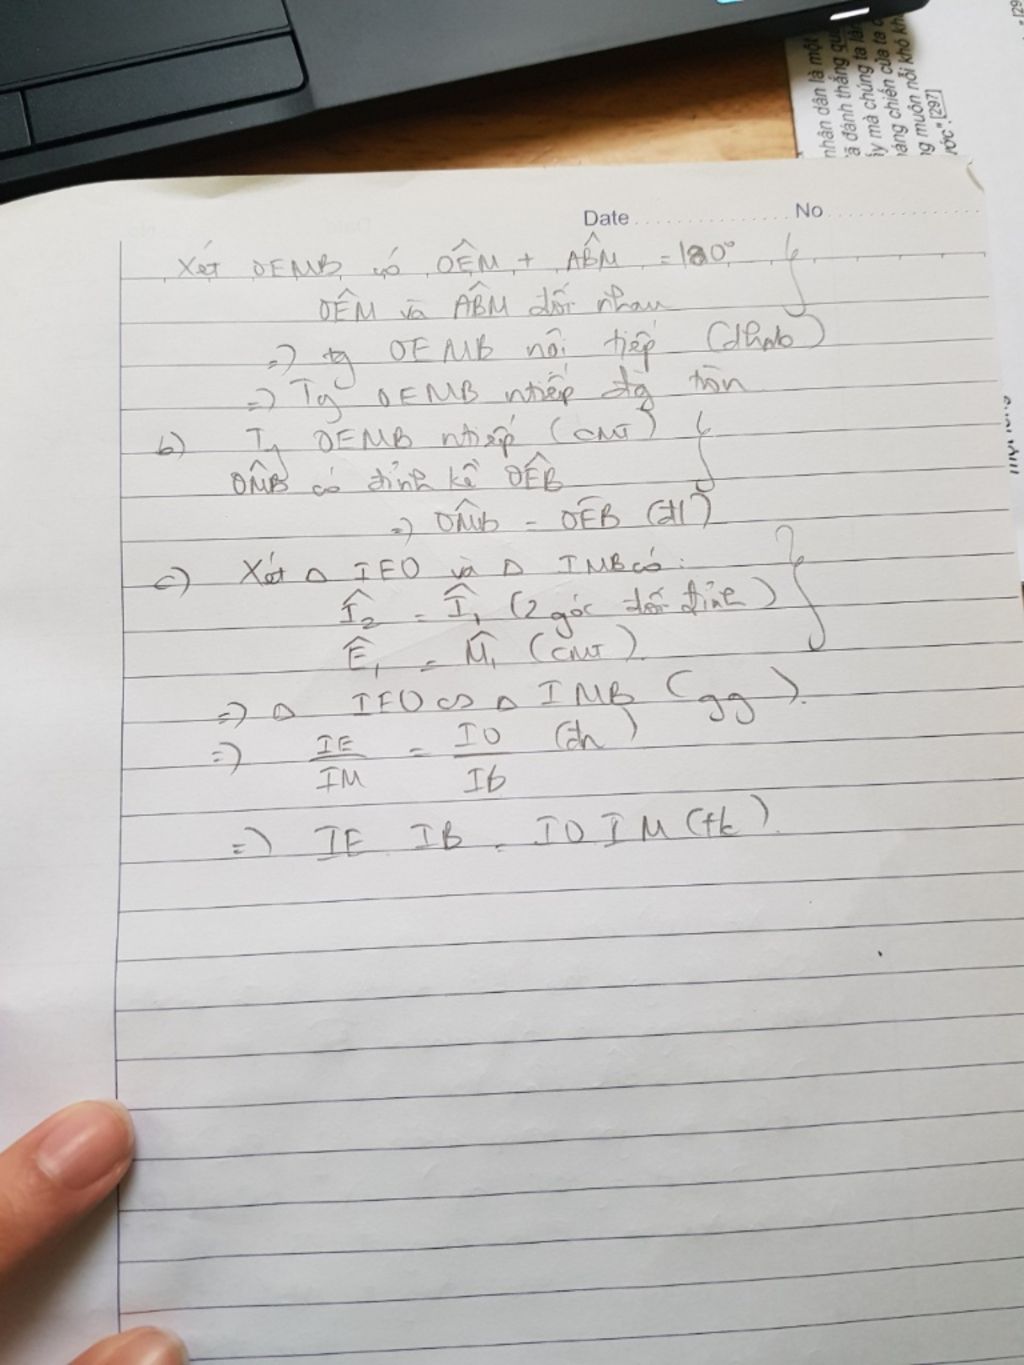 nhân dân là một
ã đánh thắng qu
ày mà chúng ta là
áng chiến của ta
g muôn nỗi khó kh
ước".[297]
Date No
Xét OEMB có OÊM + ABM̂ = 180°
OÊM và AB̂M đối nhau
=> tg OEMB nội tiếp (dhnb)
=> Tg OEMB ntiếp đg tròn
b) Tg OEMB ntiếp (CMT)
OM̂B có đỉnh kề OÊB
=> OM̂B = OÊB (đl)
c) Xét Δ IEO và Δ IMB có:
Î₂ = Î₁ (2 góc đối đỉnh)
Ê₁ = M̂₁ (CMT)
=> Δ IEO ∽ Δ IMB (gg).
=> IE/IM = IO/IB (đn)
=> IE IB = IO IM (tc).